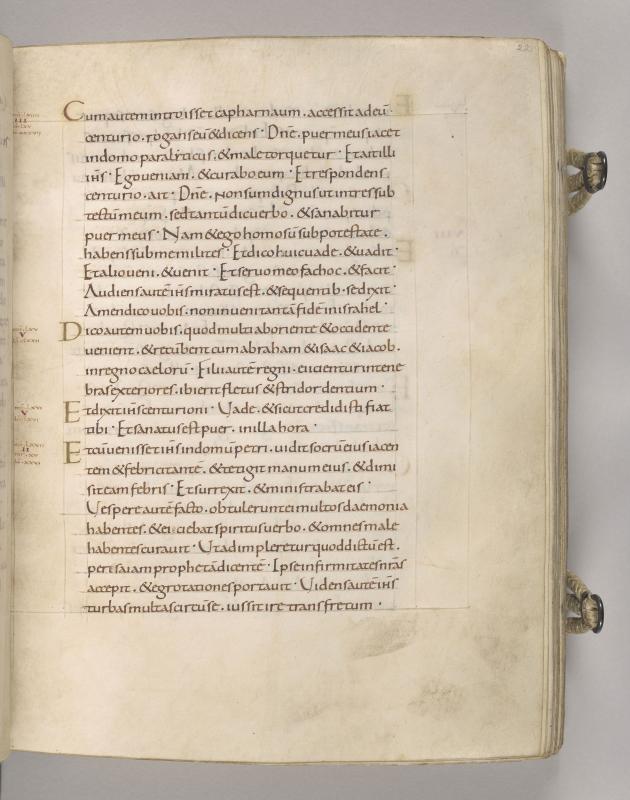 22
Cum autem introisset capharnaum . accessit ad eū .
centurio . rogans eū & dicens · Dn̄e . puer meus iacet
in domo paralyticus . & male torquetur · Et ait illi
ih̄s · Ego veniam . & curabo eum · Et respondens .
centurio . ait · Dn̄e . Non sum dignus ut intres sub
tectū meum . sed tantū dic verbo . & sanabitur
puer meus · Nam & ego homo sū sub potestate .
habens sub me milites · Et dico huic uade . & uadit ·
Et alio veni . & uenit · Et servo meo fac hoc . & facit ·
Audiens autē ih̄s miratus est . & sequentib· se dixit ·
Amen dico vobis . non inueni tantā fidē in israhel ·
Dico autem uobis . quod multi ab oriente & occidente
uenient . & recūbent cum abraham & isaac & iacob .
in regno caelorū · Filii autē regni . eicientur in tene
bras exteriores . ibi erit fletus & stridor dentium ·
Et dixit ih̄s centurioni · Uade . & sicut credidisti fiat
tibi · Et sanatus est puer . in illa hora ·
Et cū uenisset ih̄s in domū petri . uidit socrū eius iacen
tem & febricitantē . & tetigit manum eius . & dimi
sit eam febris · Et surrexit . & ministrabat eis ·
Uespere autē facto . obtulerunt ei multos daemonia
habentes . & eiciebat spiritus uerbo . & omnes male
habentes curauit · Ut adimpleretur quod dictū est .
per isaiam prophetā dicentē · Ipse infirmitates nr̄as
accepit . & egrotationes portauit · Uidens autē ih̄s
turbas multas circū se . iussit ire trans fretum ·